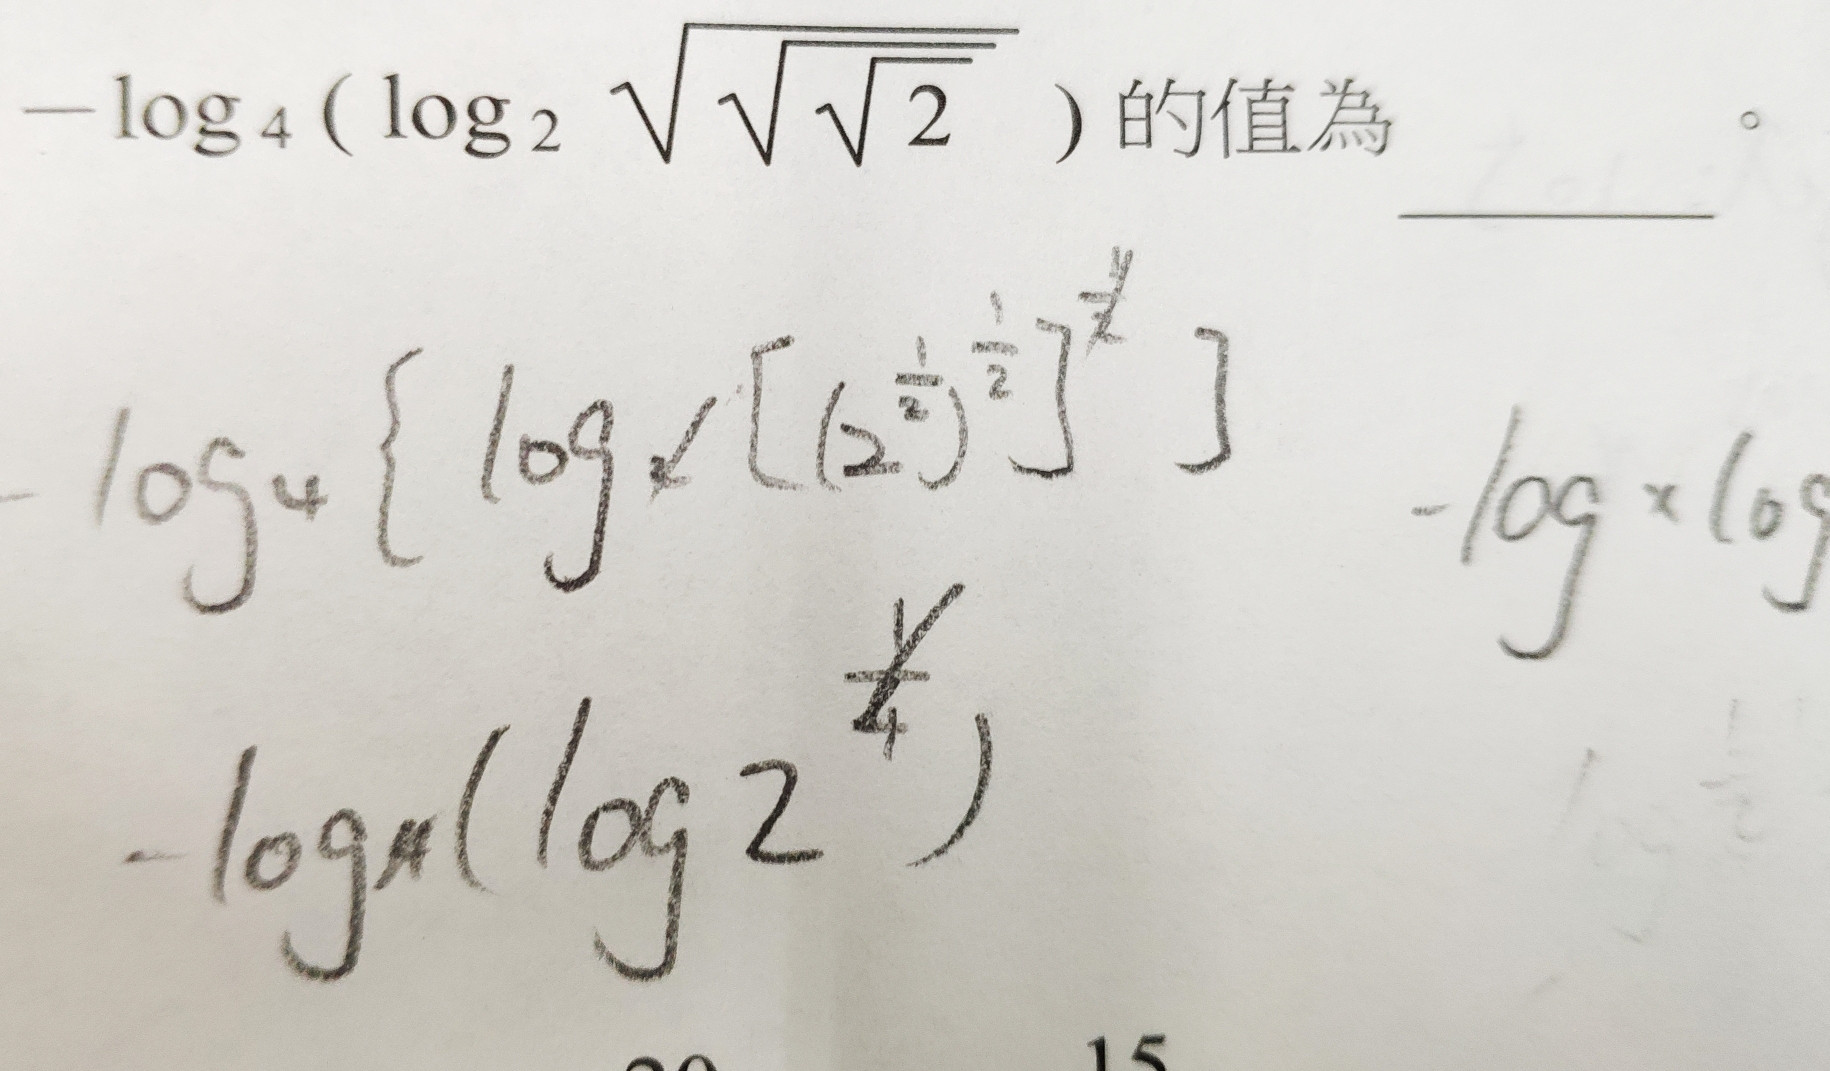 −log₄ ( log₂ √√√2 ) 的值為 ______ 。
- log₄ { log₂ [(2^(1/2))^(1/2)]^(1/2) ]
-log × log
-log₄ ( log 2^(1/4) )
20 15